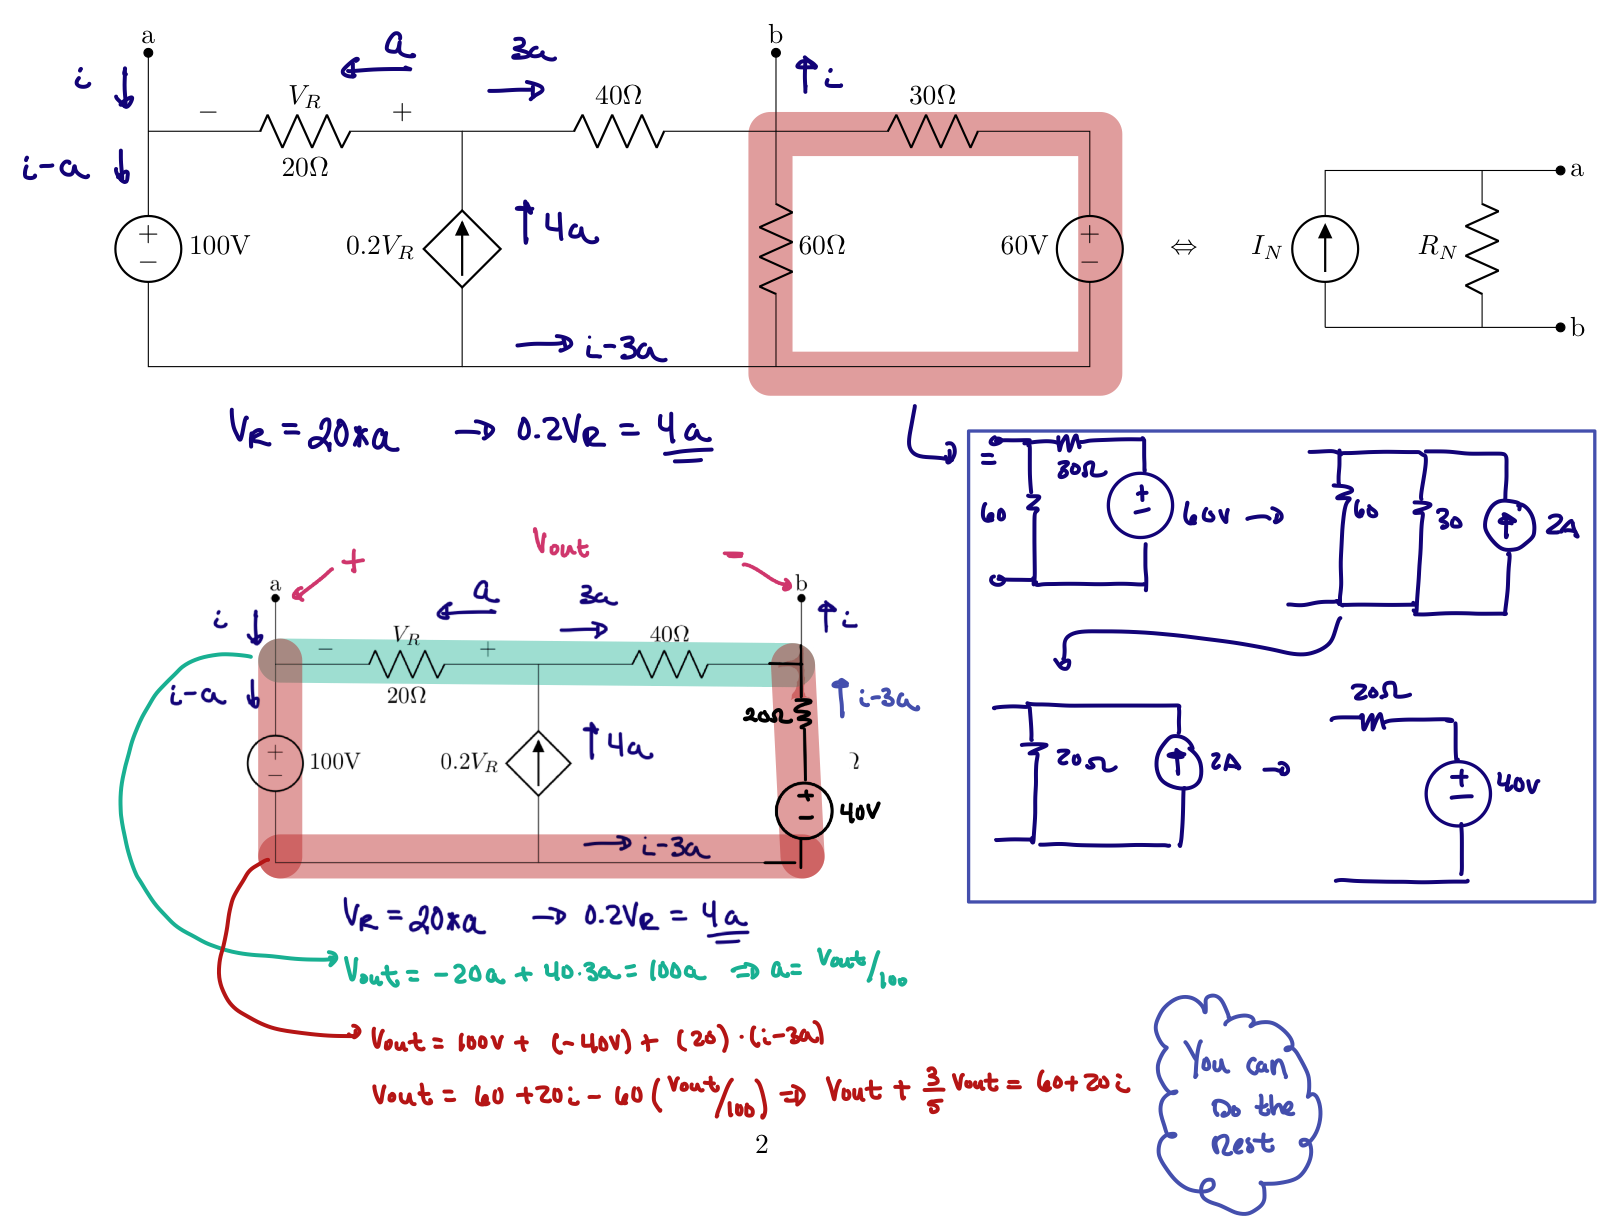 a
b
i
a
3a
i
V_R
40Ω
30Ω
−
+
i-a
20Ω
100V
0.2V_R
4a
60Ω
60V
⇔
I_N
R_N
a
b
i-3a
V_R = 20*a → 0.2V_R = 4a
=
30Ω
60
60V →
60
30
2A
20Ω
2A →
20Ω
40V
+
Vout
−
a
b
i
a
3a
i
V_R
40Ω
−
+
i-a
20Ω
20Ω
i-3a
100V
0.2V_R
4a
40V
i-3a
V_R = 20*a → 0.2V_R = 4a
Vout = -20a + 40·3a = 100a ⇒ a = Vout/100
Vout = 100V + (-40V) + (20)·(i-3a)
Vout = 60 + 20i - 60(Vout/100) ⇒ Vout + 3/5 Vout = 60+20i
You can
Do the
Rest
2